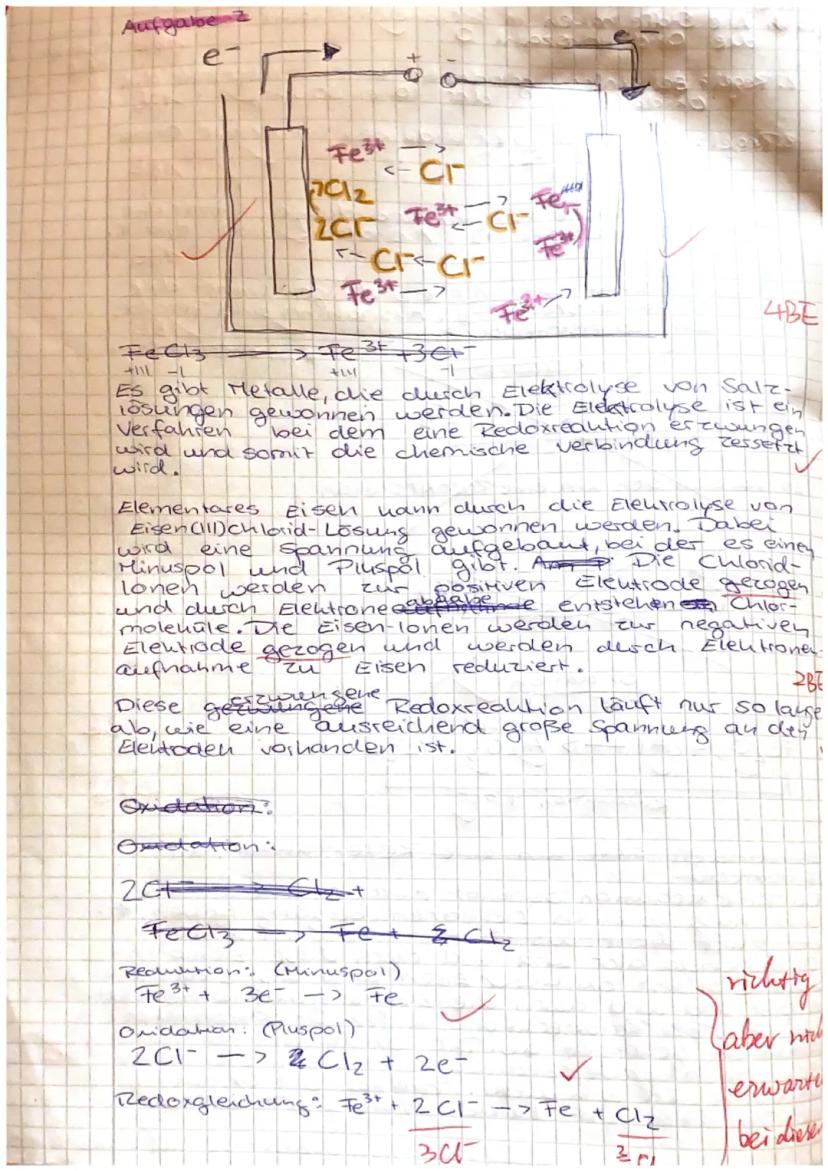 Aufgabe 2
e⁻ + - e⁻
Fe³⁺ -->
<-- Cl⁻
Cl₂
2Cl⁻
Fe³⁺ --> <-- Cl⁻
Fe
Fe³⁺
<-- Cl⁻ <-- Cl⁻
Fe³⁺ -->
Fe³⁺ -->
4BE
FeCl₃ ⟶ Fe³⁺ + 3Cl⁻
+III -I +III -I
Es gibt Metalle, die durch Elektrolyse von Salz-
lösungen gewonnen werden. Die Elektrolyse ist ein
Verfahren bei dem eine Redoxreaktion erzwungen
wird und somit die chemische Verbindung zersetzt
wird.
Elementares Eisen kann durch die Elektrolyse von
Eisen(III)chlorid-Lösung gewonnen werden. Dabei
wird eine Spannung aufgebaut, bei der es einen
Minuspol und Pluspol gibt. Die Chlorid-
Ionen werden zur positiven Elektrode gezogen
und durch Elektronenabgabe entstehen Chlor-
moleküle. Die Eisen-Ionen werden zur negativen
Elektrode gezogen und werden durch Elektronen-
aufnahme zu Eisen reduziert.
2BE
erzwungene
Diese gezwungene Redoxreaktion läuft nur so lange
ab, wie eine ausreichend große Spannung an den
Elektroden vorhanden ist.
Oxidation:
Oxidation:
2Cl⁻ ⟶ Cl₂ +
FeCl₃ ⟶ Fe + Cl₂
Reduktion: (Minuspol)
Fe³⁺ + 3e⁻ -> Fe
Oxidation: (Pluspol)
2Cl⁻ -> Cl₂ + 2e⁻
Redoxgleichung: Fe³⁺ + 2Cl⁻ -> Fe + Cl₂
3Cl⁻
richtig
aber
bei